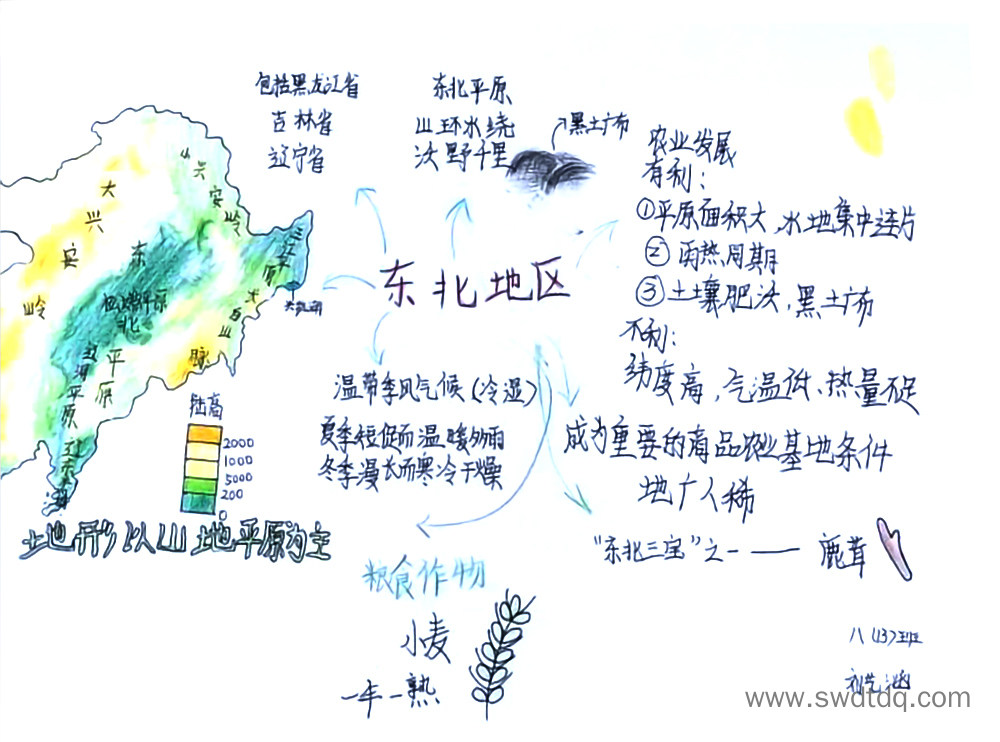 包括黑龙江省
吉林省
辽宁省
东北平原
山环水绕
沃野千里
黑土广布
农业发展
有利：
①平原面积大，水地集中连片
②雨热同期
③土壤肥沃，黑土广布
不利：
纬度高，气温低、热量不足
成为重要的商品农业基地条件
地广人稀
"东北三宝"之一——鹿茸
东北地区
温带季风气候（冷湿）
夏季短促而温暖多雨
冬季漫长而寒冷干燥
粮食作物
小麦
一年一熟
大兴安岭
小兴安岭
三江平原
长白山脉
东北平原
辽河平原
陆高
2000
1000
5000
200
0
土地形以山地平原为主
八(13)班
www.swdtdq.com